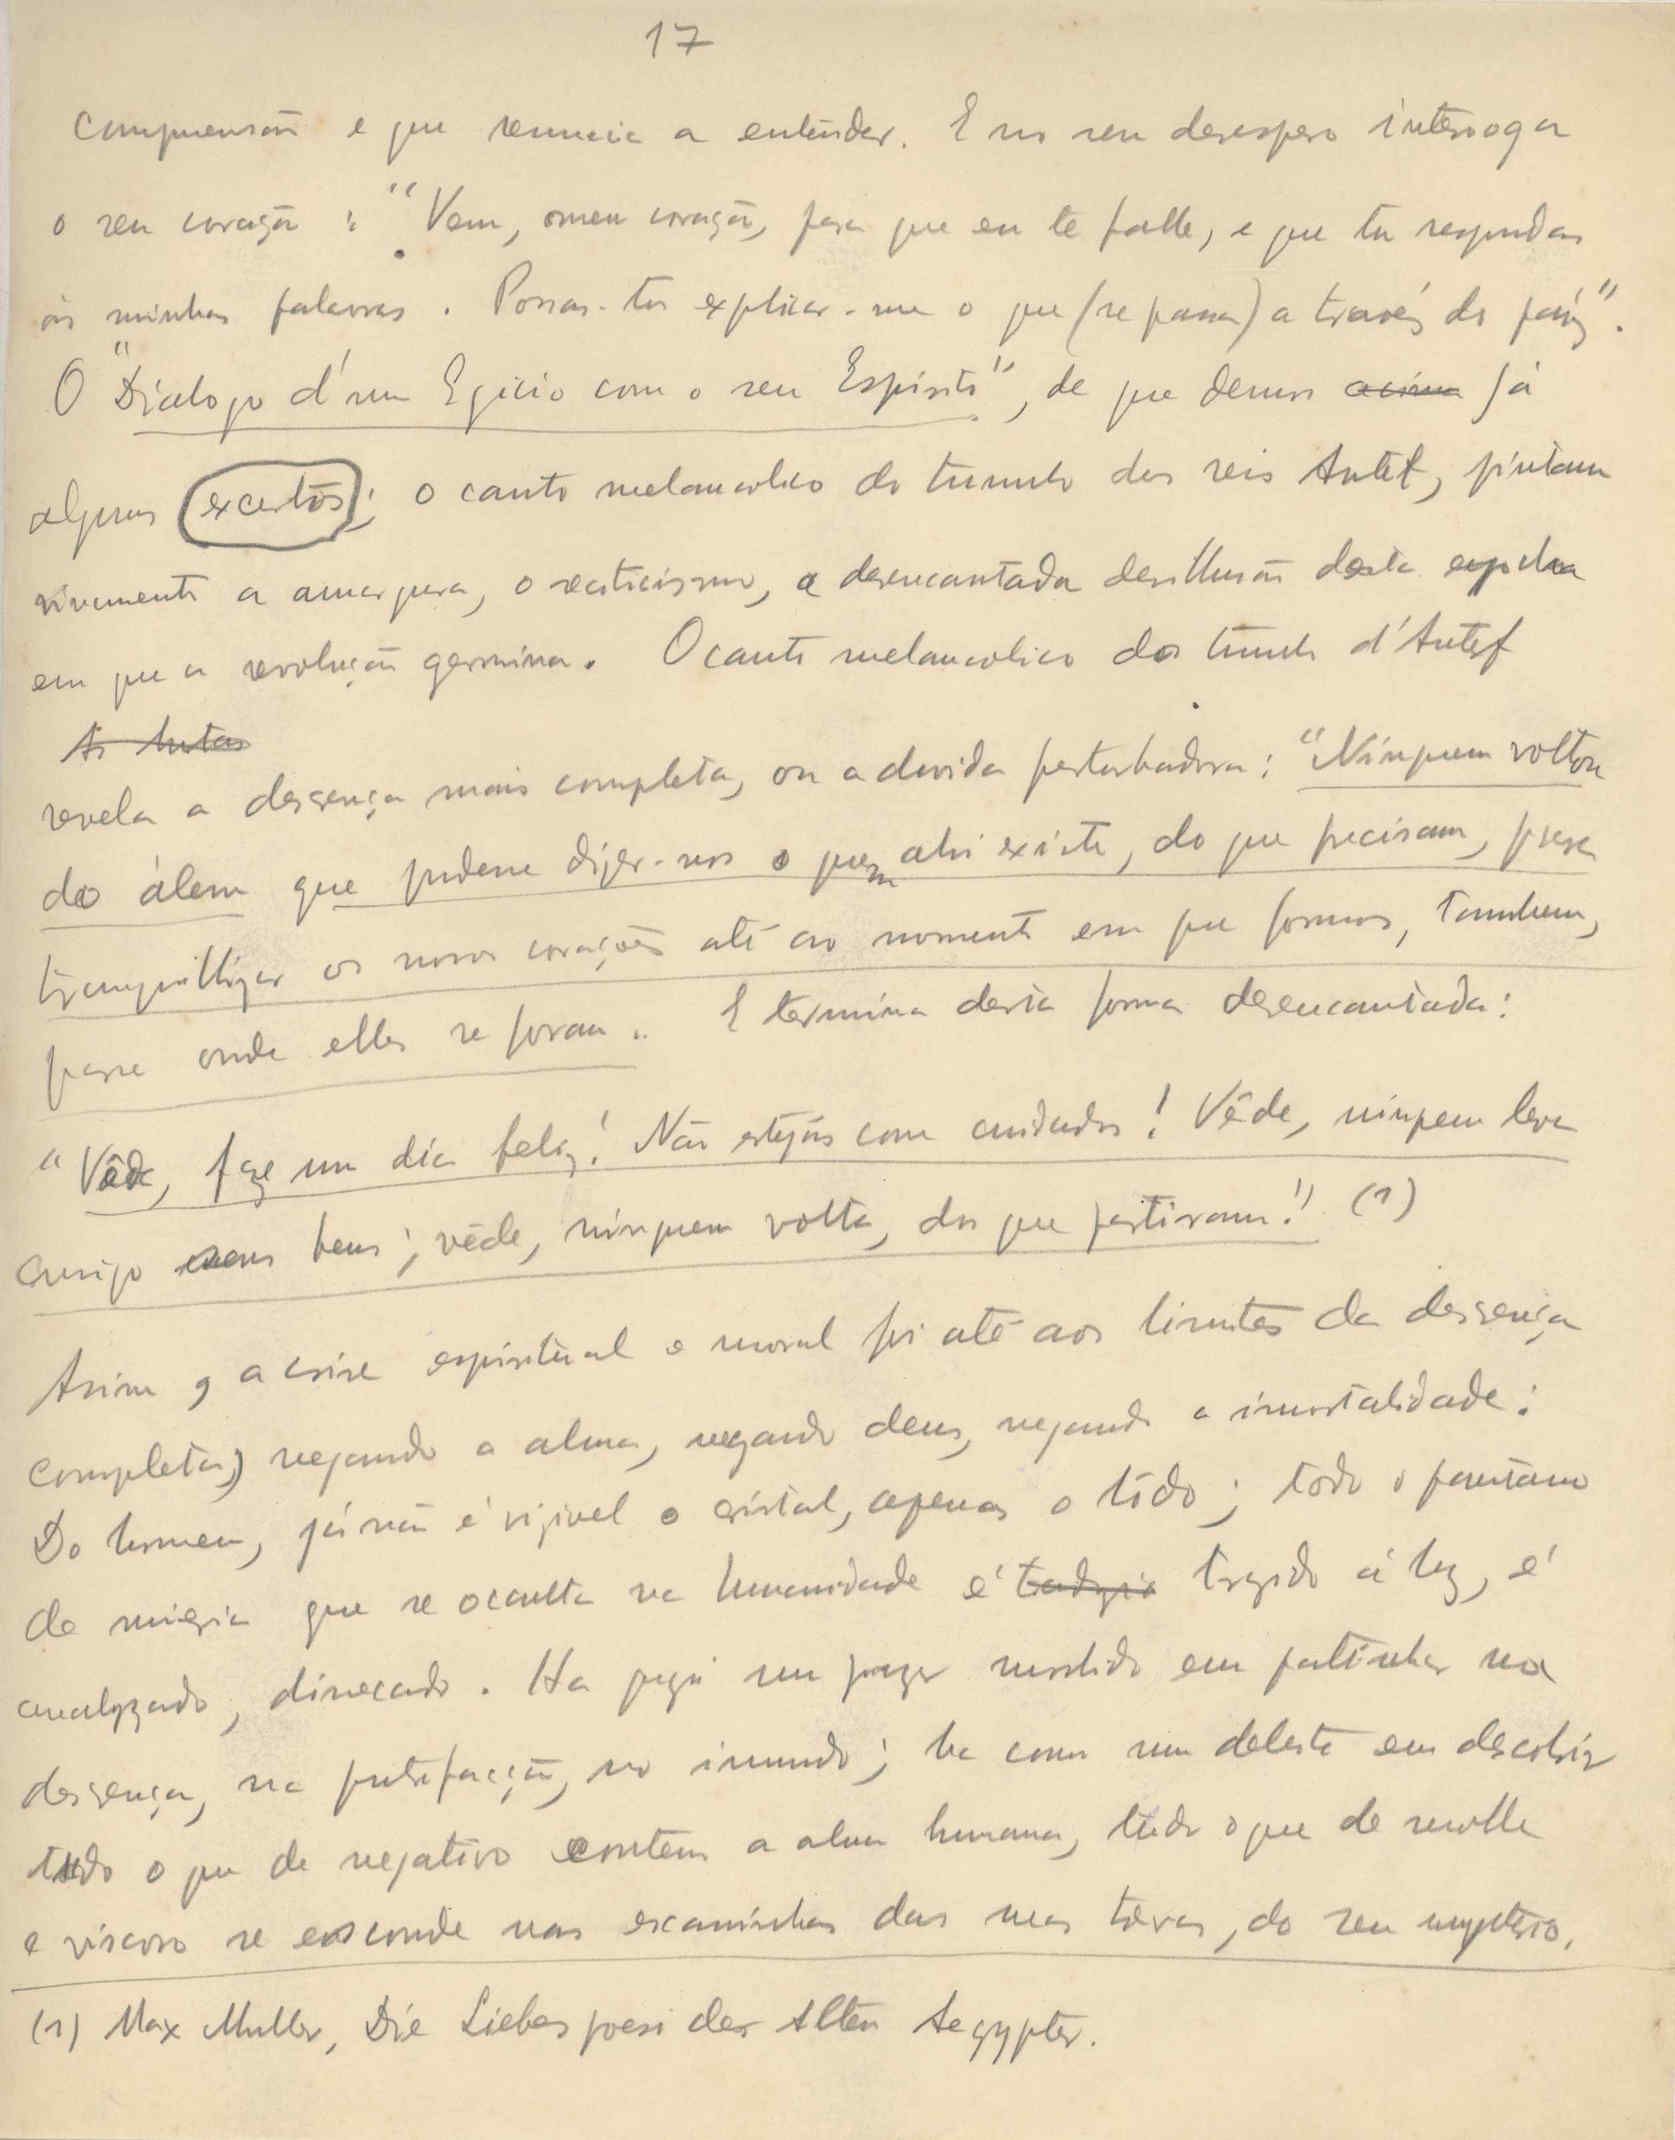 17
comprensão e que renuncia a entender. E no seu desespero interroga
o seu coração: "Vem, o meu coração, para que eu te falle, e que tu respondas
ás minhas palavras. Possas-tu explicar-me o que (se passa) a través do paíz".
O "Diálogo d'um Egicio com o seu Espirito", de que demos acima já
alguns excertos; o canto melancolico do tumulo dos reis Antef, pintam
vivamente a amargura, o scaticismo, a desencantada desillusão desta epoca
em que a revolução germina. O canto melancolico do tumulo d'Antef
As lutas
revela a descrença mais completa, ou a duvida perturbadora: "Ninguem voltou
do álem que podesse dizer-nos o quem ahi existe, do que precisam, para
tranquillizar os nossos corações até ao momento em que formos, tambem,
para onde elles se foram". E termina desta forma desencantada:
"Vêde, faze um dia feliz! Não estejás com cuidados! Vêde, ninguem leva
comsigo seus bens; vêde, ninguem volta, dos que partiram!" (1)
Assim, a crise espiritual e moral foi até aos limites da descrença
completa, negando a alma, negando deus, negando a imortalidade:
Do homem, já não é vizivel o cristal, apenas o lôdo; todo o pantano
de mizeria que se occulta na humanidade é trazido á luz, é
analyzado, dissecado. Ha aqui um prazer mordido em patinhar na
descrença, na putrefacção, no imundo; ha como um deleite em descobrir
tudo o que de negativo contem a alma humana, tudo o que de molle
e viscoso se esconde nos escaninhos das suas trevas, do seu mysterio.
(1) Max Muller, Die Liebespoesi der Alten Aegypter.